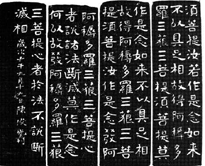 須菩提汝若作是念如來
不以具足相故得阿耨多
羅三藐三菩提須菩提莫
作是念如來不以具足相
故得阿耨多羅三藐三菩
提須菩提汝若作是念發
阿耨多羅三藐三菩提心
者說諸法斷滅莫作是念
何以故發阿耨多羅三藐
三菩提心者於法不說斷
滅相